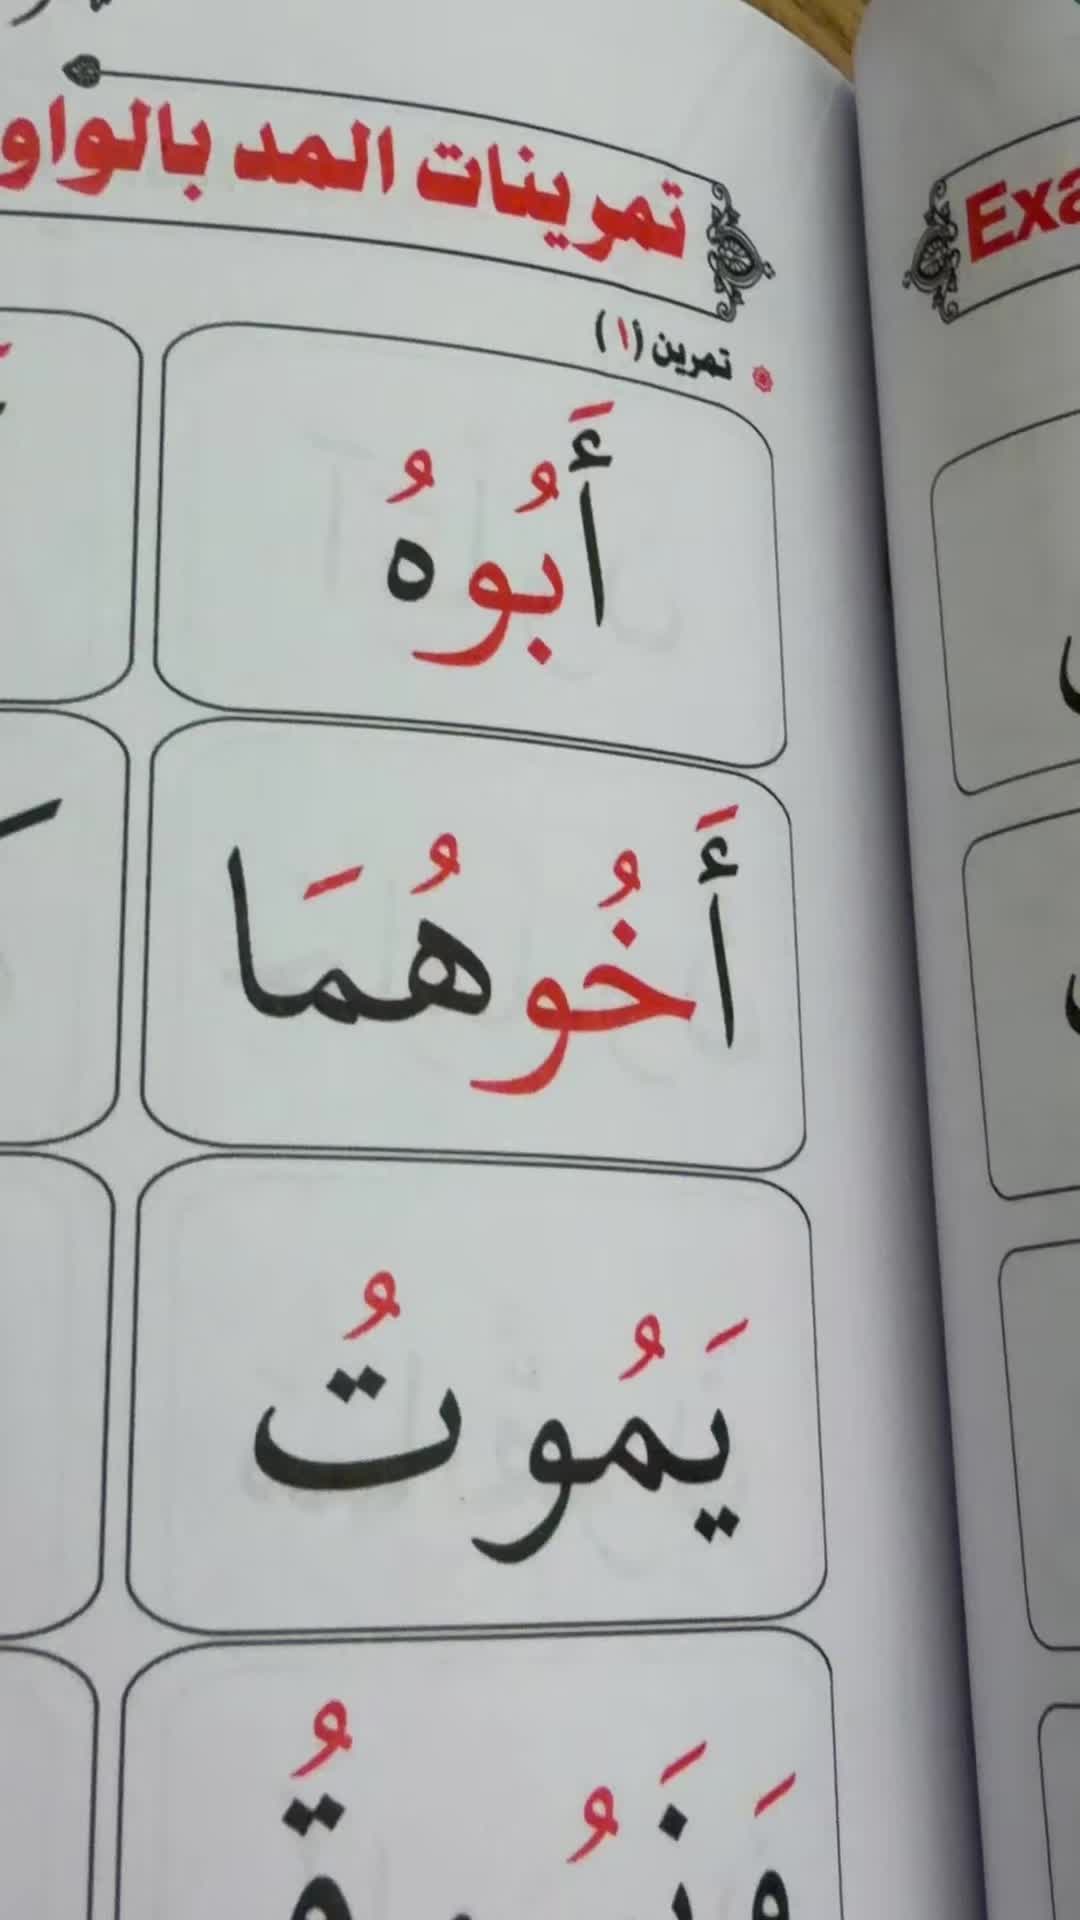 تمرينات المد بالواو
تمرين (١)
أَبُوهُ
أَخُوهُمَا
يَمُوتُ